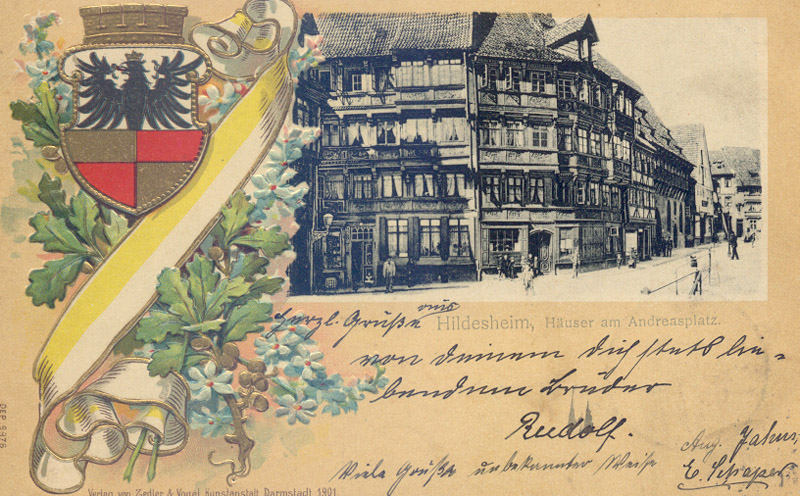 Herzl. Grüße aus
Hildesheim, Häuser am Andreasplatz.
von Deinem Dich stets lie-
bendem Bruder
Rudolf.
Viele Grüße unbekannter Weise
Aug. Jahns,
E. Schaper.
DEP. 9376
Verlag von Zedler & Vogel Kunstanstalt Darmstadt 1901